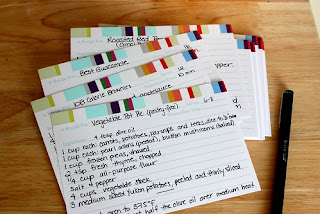 Roasted Red
Best Guacamole
10 min
pper.
108 Calorie Brownies
applesauce
Vegetable Pot Pie (pastry-free)
6-8
4 tbsp olive oil
1 cup each: carrots, potatoes, parsnips and
1 cup each: pearl onions (peeled), button mushrooms (halved)
1 cup frozen peas, thawed
2 tbsp fresh thyme, chopped
1/4 cup all-purpose flour
Salt & pepper
4 cups vegetable stock
3 medium sized Yukon potatoes, peeled and thinly sliced
oven to 375°F
half the olive oil over medium heat